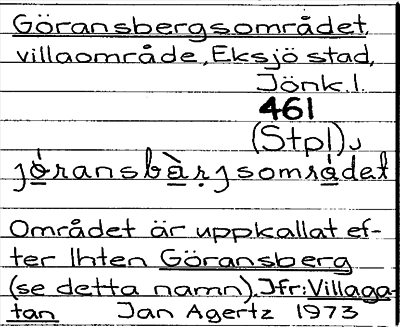 Göransbergsområdet,
villaområde, Eksjö stad,
Jönk. l.
461
(Stpl)
jö́ransbàrjsområdet
Området är uppkallat ef-
ter lhten Göransberg
(se detta namn). Jfr: Villaga-
tan Jan Agertz 1973